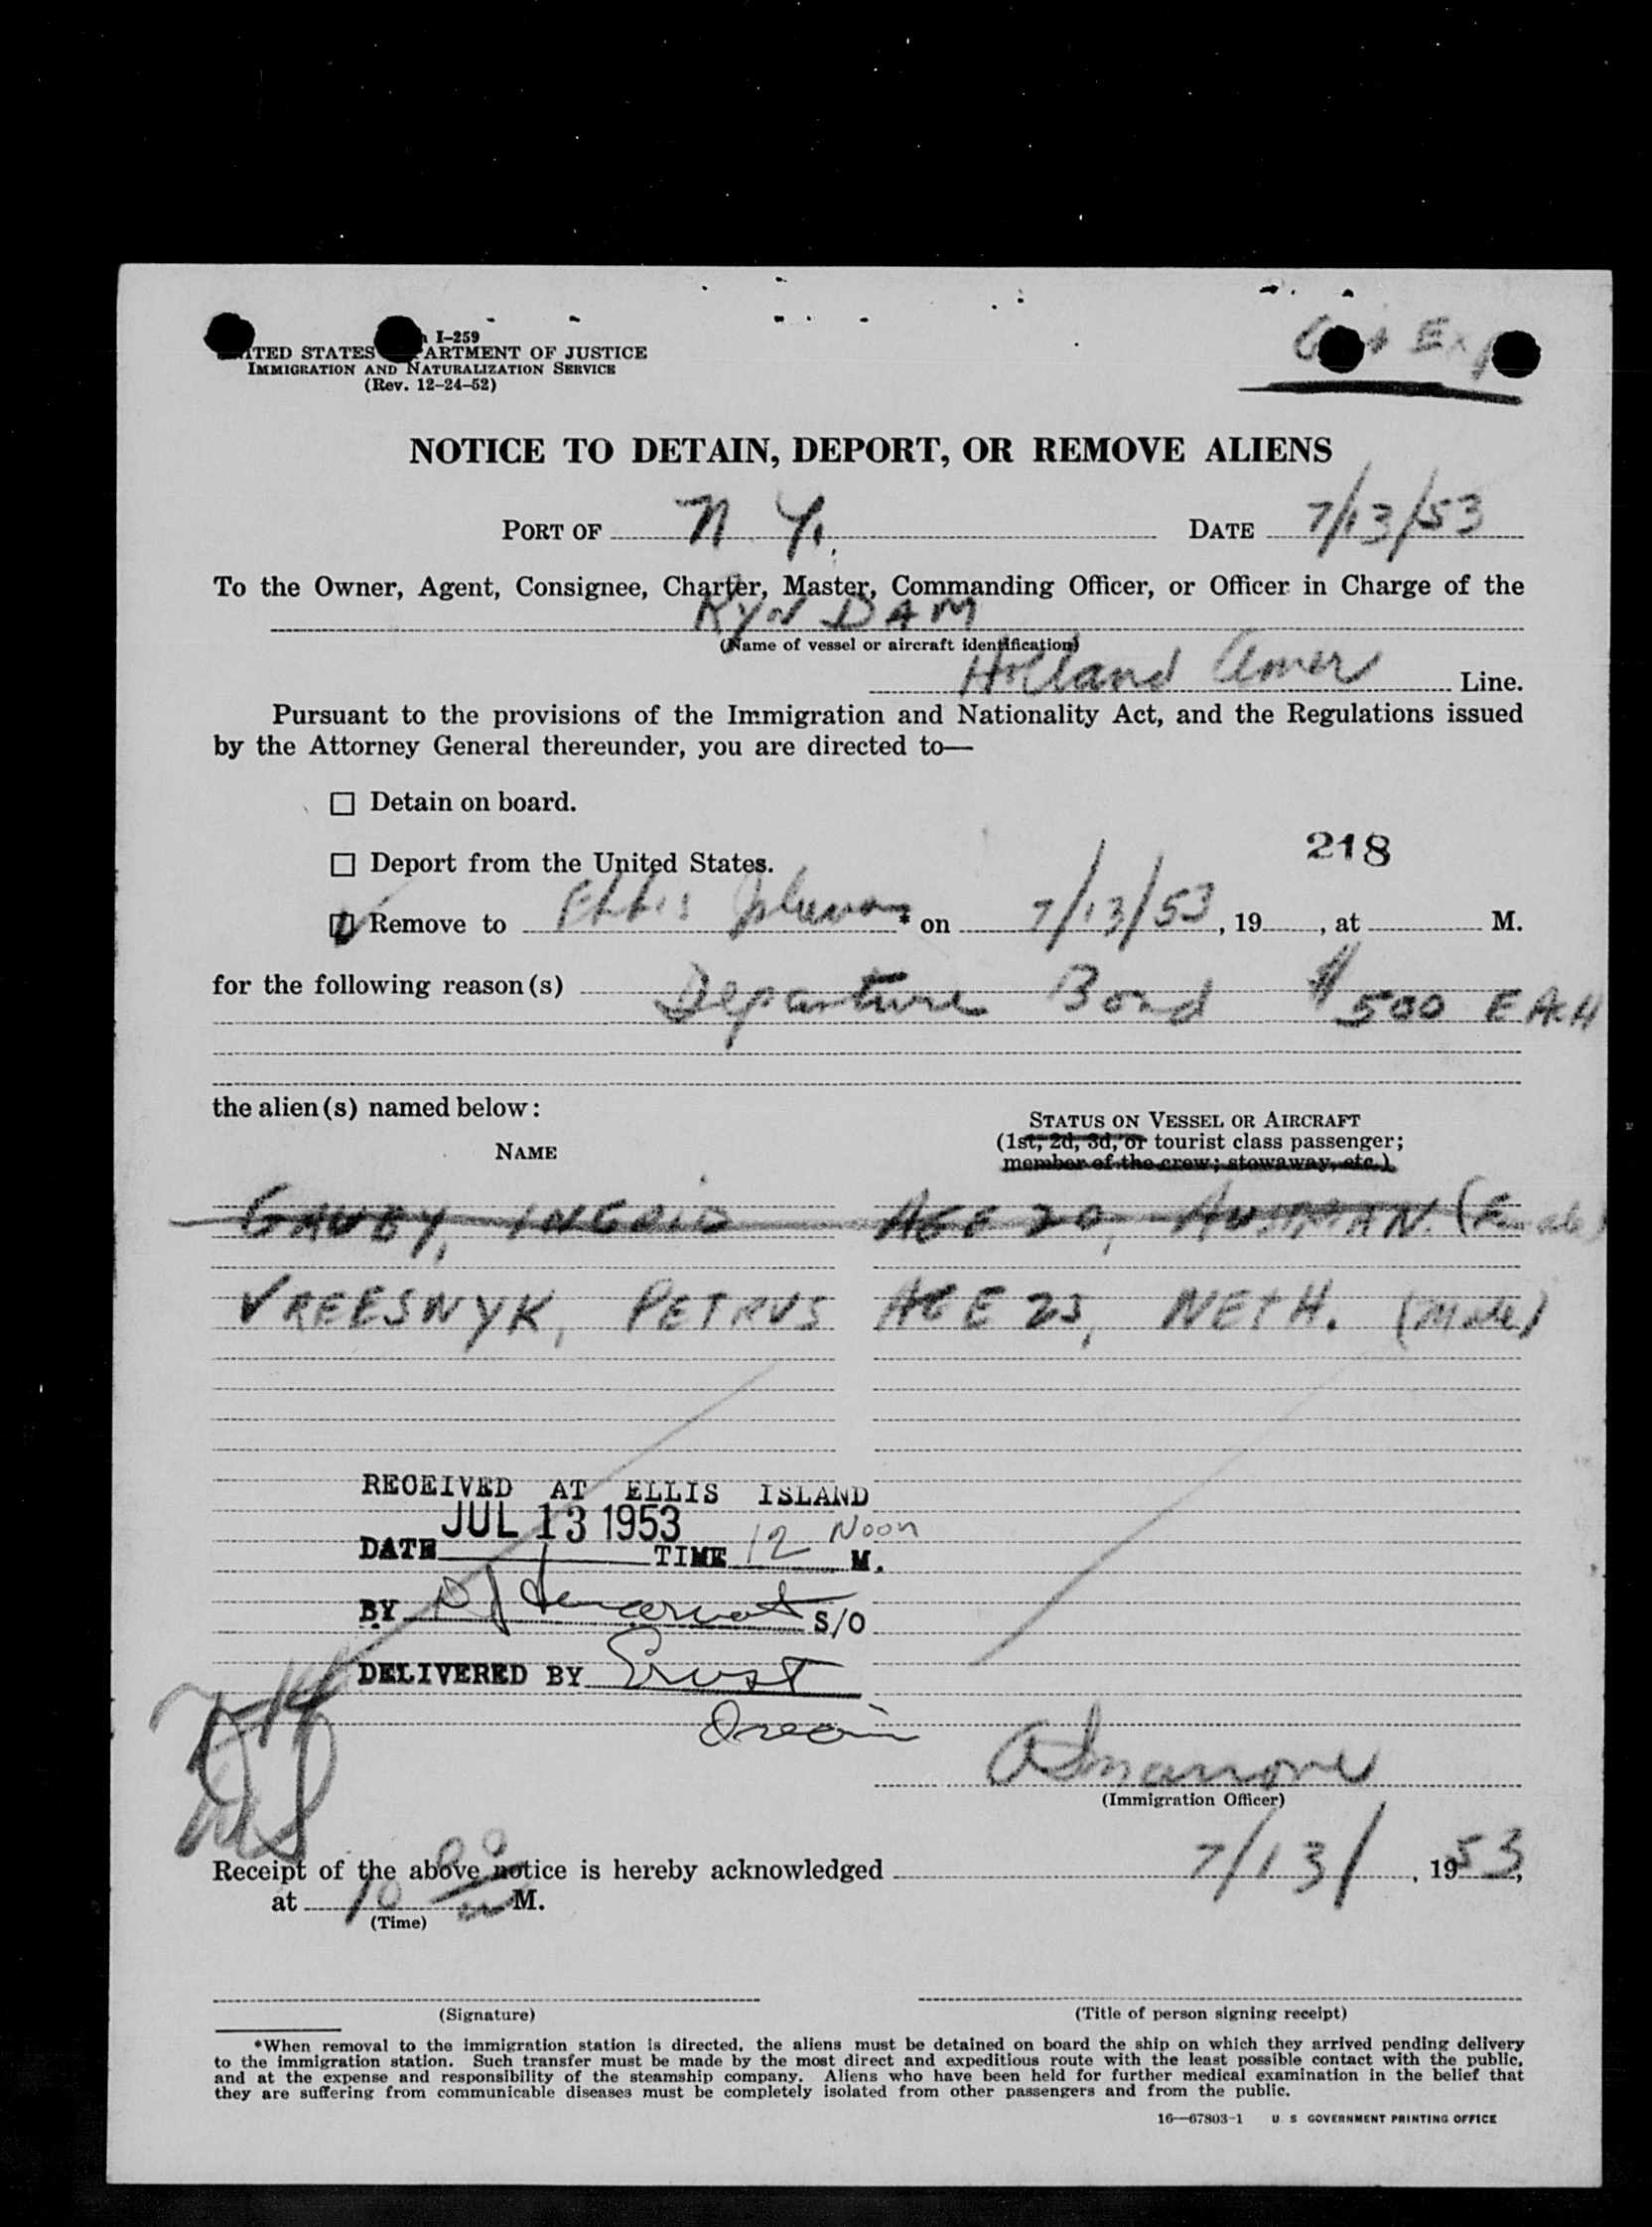 I-259
ITED STATES ARTMENT OF JUSTICE
IMMIGRATION AND NATURALIZATION SERVICE
(Rev. 12-24-52)
NOTICE TO DETAIN, DEPORT, OR REMOVE ALIENS
PORT OF N. Y. DATE 7/13/53
To the Owner, Agent, Consignee, Charter, Master, Commanding Officer, or Officer in Charge of the
RYN DAM
(Name of vessel or aircraft identification)
Holland Amer Line.
Pursuant to the provisions of the Immigration and Nationality Act, and the Regulations issued
by the Attorney General thereunder, you are directed to—
Detain on board.
218
Deport from the United States.
Remove to Ellis * on 7/13/53, 19 , at M.
for the following reason(s) Departure Bond $500 EACH
the alien(s) named below:
STATUS ON VESSEL OR AIRCRAFT
(1st, 2d, 3d, or tourist class passenger;
member of the crew; stowaway, etc.)
NAME
GAUBY, INGRID AGE 20, AUSTRIAN. (Female)
VREESNYK, PETRUS AGE 23, NETH. (Male)
RECEIVED AT ELLIS ISLAND
JUL 13 1953
DATE TIME 12 Noon M.
BY S/O
DELIVERED BY Ernst
(Immigration Officer)
Receipt of the above notice is hereby acknowledged 7/13/, 1953,
at 10 00 M.
(Time)
(Signature) (Title of person signing receipt)
*When removal to the immigration station is directed, the aliens must be detained on board the ship on which they arrived pending delivery
to the immigration station. Such transfer must be made by the most direct and expeditious route with the least possible contact with the public,
and at the expense and responsibility of the steamship company. Aliens who have been held for further medical examination in the belief that
they are suffering from communicable diseases must be completely isolated from other passengers and from the public.
16—67803-1 U. S GOVERNMENT PRINTING OFFICE